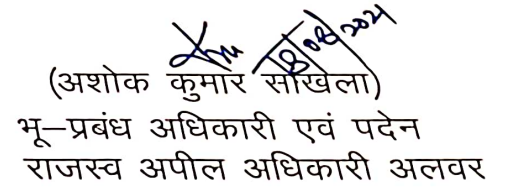 18/08/2021
(अशोक कुमार सांखला)
भू–प्रबंध अधिकारी एवं पदेन
राजस्व अपील अधिकारी अलवर